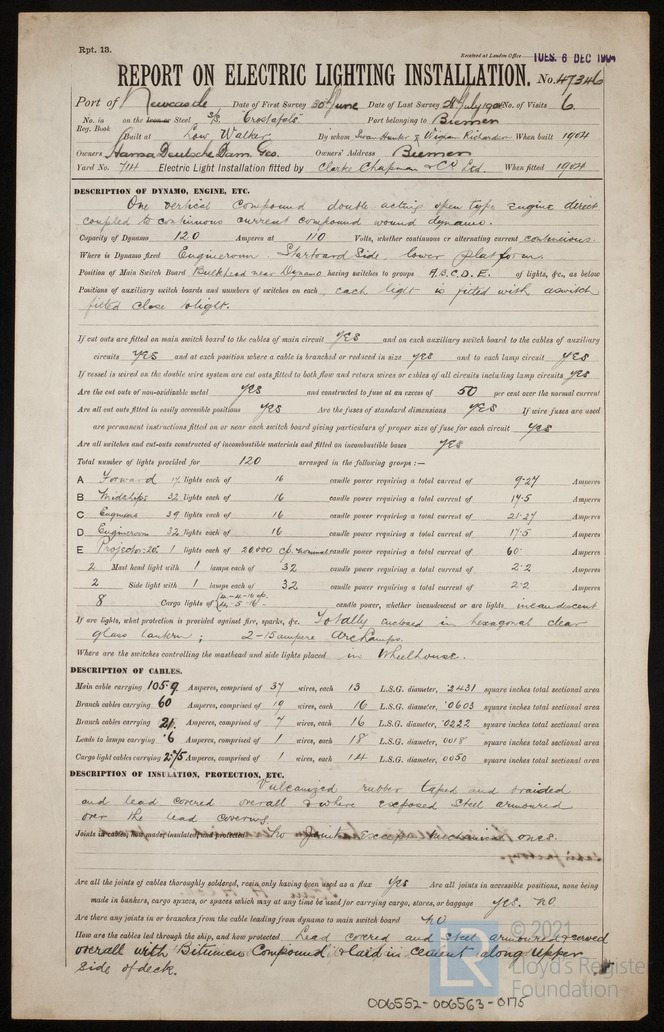 Rpt. 13.
Received at London Office TUES. 6 DEC 1904
REPORT ON ELECTRIC LIGHTING INSTALLATION. No. 47346
Port of Newcastle Date of First Survey 30th June Date of Last Survey 28th July 1904 No. of Visits 6.
No. in Reg. Book on the Iron or Steel S/S. "Crostafels" Port belonging to Bremen
Built at Low Walker By whom Swan Hunter & Wigham Richardson When built 1904
Owners Hansa Deutsche Dam. Ges. Owners' Address Bremen
Yard No. 714 Electric Light Installation fitted by Clarke Chapman & Co Ltd. When fitted 1904
DESCRIPTION OF DYNAMO, ENGINE, ETC.
One vertical compound double acting open type engine direct
coupled to continuous current compound wound dynamo.
Capacity of Dynamo 120 Amperes at 110 Volts, whether continuous or alternating current continuous.
Where is Dynamo fixed Engineroom, Starboard Side, lower platform.
Position of Main Switch Board Bulkhead near Dynamo having switches to groups A.B.C.D.E. of lights, &c., as below
Positions of auxiliary switch boards and numbers of switches on each each light is fitted with a switch
fitted close to light.
If cut outs are fitted on main switch board to the cables of main circuit yes and on each auxiliary switch board to the cables of auxiliary
circuits yes and at each position where a cable is branched or reduced in size yes and to each lamp circuit yes
If vessel is wired on the double wire system are cut outs fitted to both flow and return wires or cables of all circuits including lamp circuits yes
Are the cut outs of non-oxidizable metal yes and constructed to fuse at an excess of 50 per cent over the normal current
Are all cut outs fitted in easily accessible positions yes Are the fuses of standard dimensions yes If wire fuses are used
are permanent instructions fitted on or near each switch board giving particulars of proper size of fuse for each circuit yes
Are all switches and cut-outs constructed of incombustible materials and fitted on incombustible bases yes
Total number of lights provided for 120 arranged in the following groups :—
A Forward 17 lights each of 16 candle power requiring a total current of 9.27 Amperes
B Midships 32 lights each of 16 candle power requiring a total current of 17.5 Amperes
C Engineers 39 lights each of 16 candle power requiring a total current of 21.27 Amperes
D Engineroom 32 lights each of 16 candle power requiring a total current of 17.5 Amperes
E Projector 1 lights each of 20000 c.p. nominal candle power requiring a total current of 60 Amperes
2 Mast head light with 1 lamps each of 32 candle power requiring a total current of 2.2 Amperes
2 Side light with 1 lamps each of 32 candle power requiring a total current of 2.2 Amperes
8 Cargo lights of 4-4-16 cp. 4-5-16 candle power, whether incandescent or arc lights incandescent
If arc lights, what protection is provided against fire, sparks, &c. Totally enclosed in hexagonal clear
glass lantern; 2-15 ampere Arc Lamps.
Where are the switches controlling the masthead and side lights placed in Wheelhouse.
DESCRIPTION OF CABLES.
Main cable carrying 105.9 Amperes, comprised of 37 wires, each 13 L.S.G. diameter, .2431 square inches total sectional area
Branch cables carrying 60 Amperes, comprised of 19 wires, each 16 L.S.G. diameter, .0603 square inches total sectional area
Branch cables carrying 21. Amperes, comprised of 7 wires, each 16 L.S.G. diameter, .0222 square inches total sectional area
Leads to lamps carrying .6 Amperes, comprised of 1 wires, each 18 L.S.G. diameter, .0018 square inches total sectional area
Cargo light cables carrying 2.75 Amperes, comprised of 1 wires, each 14 L.S.G. diameter, .0050 square inches total sectional area
DESCRIPTION OF INSULATION, PROTECTION, ETC.
Vulcanized rubber taped and braided
and lead covered overall & where exposed steel armoured
over the lead covering.
Joints in cables, how made, insulated, and protected No Joints except mechanical ones.
Are all the joints of cables thoroughly soldered, resin only having been used as a flux yes Are all joints in accessible positions, none being
made in bunkers, cargo spaces, or spaces which may at any time be used for carrying cargo, stores, or baggage yes. no
Are there any joints in or branches from the cable leading from dynamo to main switch board no
How are the cables led through the ship, and how protected Lead covered and steel armoured & served
overall with Bitumen Compound & laid in cement along upper
side of deck.
© 2021
LR
Lloyd's Register
Foundation
006552-006563-0175